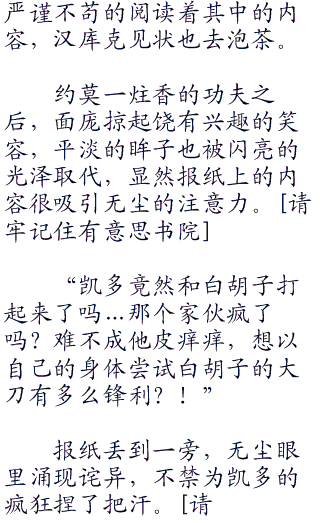 严谨不苟的阅读着其中的内
容，汉库克见状也去泡茶。
约莫一炷香的功夫之
后，面庞掠起饶有兴趣的笑
容，平淡的眸子也被闪亮的
光泽取代，显然报纸上的内
容很吸引无尘的注意力。[请
牢记住有意思书院]
“凯多竟然和白胡子打
起来了吗…那个家伙疯了
吗？难不成他皮痒痒，想以
自己的身体尝试白胡子的大
刀有多么锋利？！”
报纸丢到一旁，无尘眼
里涌现诧异，不禁为凯多的
疯狂捏了把汗。[请